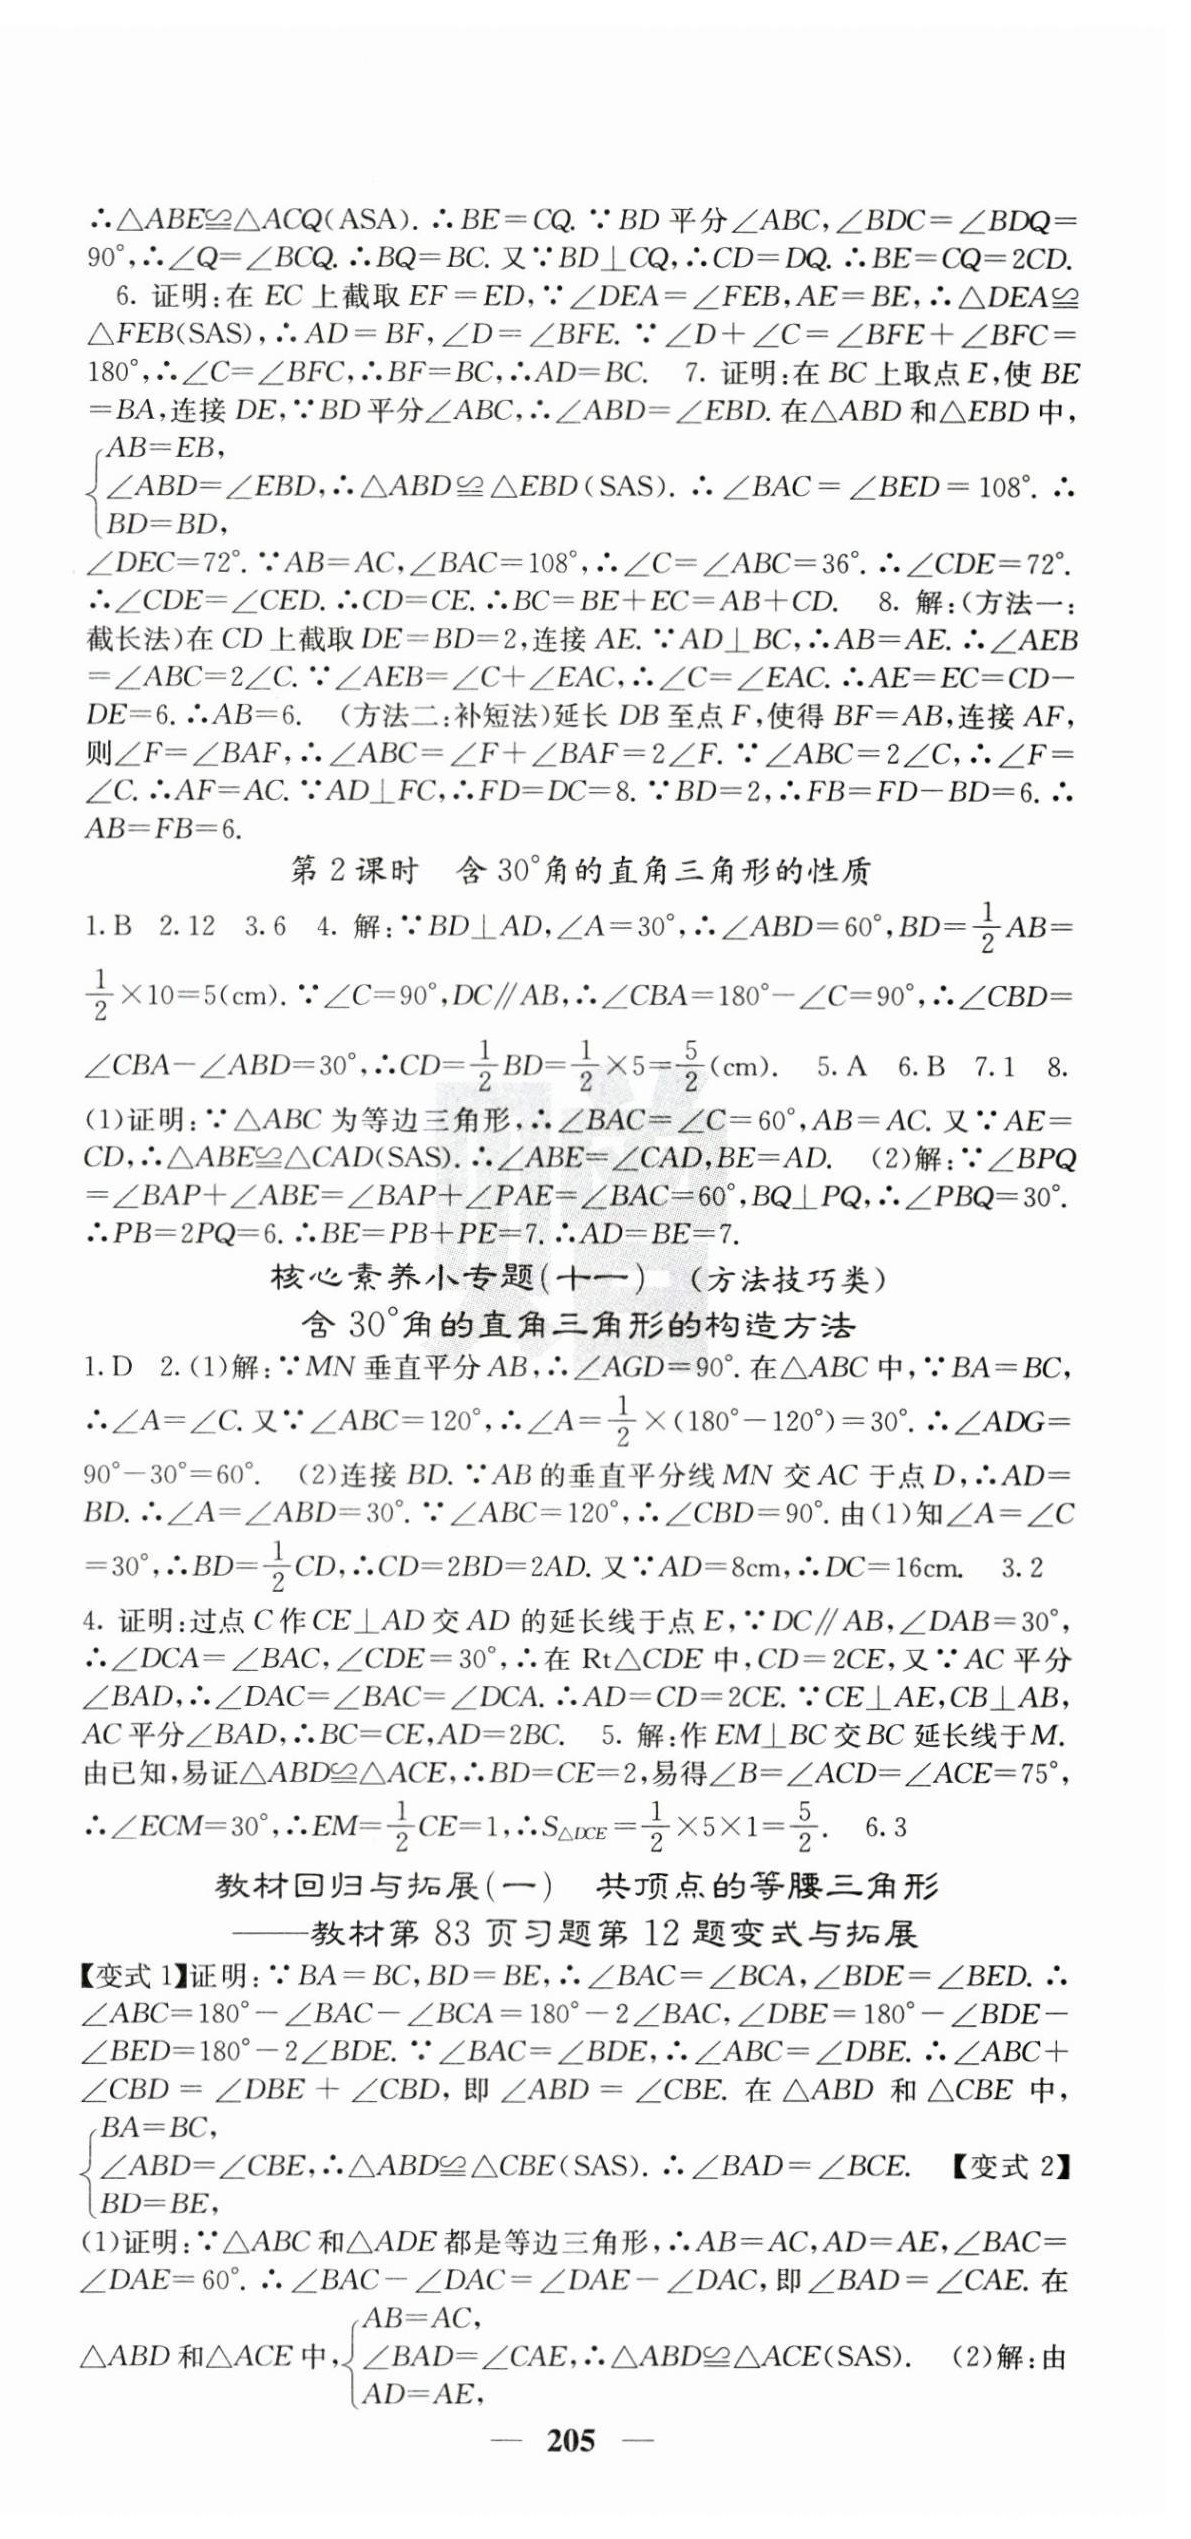 ∴△ABE≌△ACQ(ASA). ∴BE=CQ. ∵BD 平分∠ABC,∠BDC=∠BDQ=
90°,∴∠Q=∠BCQ. ∴BQ=BC. 又∵BD⊥CQ,∴CD=DQ. ∴BE=CQ=2CD.
6. 证明:在 EC 上截取 EF=ED,∵∠DEA=∠FEB,AE=BE,∴△DEA≌
△FEB(SAS),∴AD=BF,∠D=∠BFE. ∵∠D+∠C=∠BFE+∠BFC=
180°,∴∠C=∠BFC,∴BF=BC,∴AD=BC. 7. 证明:在 BC 上取点 E,使 BE
=BA,连接 DE,∵BD 平分∠ABC,∴∠ABD=∠EBD. 在△ABD 和△EBD 中,
AB=EB,
∠ABD=∠EBD,∴△ABD≌△EBD(SAS). ∴∠BAC=∠BED=108°. ∴
BD=BD,
∠DEC=72°. ∵AB=AC,∠BAC=108°,∴∠C=∠ABC=36°. ∴∠CDE=72°.
∴∠CDE=∠CED. ∴CD=CE. ∴BC=BE+EC=AB+CD. 8. 解:(方法一:
截长法)在 CD 上截取 DE=BD=2,连接 AE. ∵AD⊥BC,∴AB=AE. ∴∠AEB
=∠ABC=2∠C. ∵∠AEB=∠C+∠EAC,∴∠C=∠EAC. ∴AE=EC=CD−
DE=6. ∴AB=6. (方法二:补短法)延长 DB 至点 F,使得 BF=AB,连接 AF,
则∠F=∠BAF,∴∠ABC=∠F+∠BAF=2∠F. ∵∠ABC=2∠C,∴∠F=
∠C. ∴AF=AC. ∵AD⊥FC,∴FD=DC=8. ∵BD=2,∴FB=FD−BD=6. ∴
AB=FB=6.
第 2 课时 含 30°角的直角三角形的性质
1. B 2. 12 3. 6 4. 解:∵BD⊥AD,∠A=30°,∴∠ABD=60°,BD=1/2 AB=
1/2×10=5(cm). ∵∠C=90°,DC∥AB,∴∠CBA=180°−∠C=90°,∴∠CBD=
∠CBA−∠ABD=30°,∴CD=1/2 BD=1/2×5=5/2(cm). 5. A 6. B 7. 1 8.
(1)证明:∵△ABC 为等边三角形,∴∠BAC=∠C=60°,AB=AC. 又∵AE=
CD,∴△ABE≌△CAD(SAS). ∴∠ABE=∠CAD,BE=AD. (2)解:∵∠BPQ
=∠BAP+∠ABE=∠BAP+∠PAE=∠BAC=60°,BQ⊥PQ,∴∠PBQ=30°.
∴PB=2PQ=6. ∴BE=PB+PE=7. ∴AD=BE=7.
核心素养小专题(十一) (方法技巧类)
含 30°角的直角三角形的构造方法
1. D 2. (1)解:∵MN 垂直平分 AB,∴∠AGD=90°. 在△ABC 中,∵BA=BC,
∴∠A=∠C. 又∵∠ABC=120°,∴∠A=1/2×(180°−120°)=30°. ∴∠ADG=
90°−30°=60°. (2)连接 BD. ∵AB 的垂直平分线 MN 交 AC 于点 D,∴AD=
BD. ∴∠A=∠ABD=30°. ∵∠ABC=120°,∴∠CBD=90°. 由(1)知∠A=∠C
=30°,∴BD=1/2 CD,∴CD=2BD=2AD. 又∵AD=8cm,∴DC=16cm. 3. 2
4. 证明:过点 C 作 CE⊥AD 交 AD 的延长线于点 E,∵DC∥AB,∠DAB=30°,
∴∠DCA=∠BAC,∠CDE=30°,∴在 Rt△CDE 中,CD=2CE,又∵AC 平分
∠BAD,∴∠DAC=∠BAC=∠DCA. ∴AD=CD=2CE. ∵CE⊥AE,CB⊥AB,
AC 平分∠BAD,∴BC=CE,AD=2BC. 5. 解:作 EM⊥BC 交 BC 延长线于 M.
由已知,易证△ABD≌△ACE,∴BD=CE=2,易得∠B=∠ACD=∠ACE=75°,
∴∠ECM=30°,∴EM=1/2 CE=1,∴S△DCE=1/2×5×1=5/2. 6. 3
教材回归与拓展(一) 共顶点的等腰三角形
——教材第 83 页习题第 12 题变式与拓展
【变式 1】证明:∵BA=BC,BD=BE,∴∠BAC=∠BCA,∠BDE=∠BED. ∴
∠ABC=180°−∠BAC−∠BCA=180°−2∠BAC,∠DBE=180°−∠BDE−
∠BED=180°−2∠BDE. ∵∠BAC=∠BDE,∴∠ABC=∠DBE. ∴∠ABC+
∠CBD=∠DBE+∠CBD,即∠ABD=∠CBE. 在△ABD 和△CBE 中,
BA=BC,
∠ABD=∠CBE,∴△ABD≌△CBE(SAS). ∴∠BAD=∠BCE. 【变式 2】
BD=BE,
(1)证明:∵△ABC 和△ADE 都是等边三角形,∴AB=AC,AD=AE,∠BAC=
∠DAE=60°. ∴∠BAC−∠DAC=∠DAE−∠DAC,即∠BAD=∠CAE. 在
AB=AC,
△ABD 和△ACE 中, ∠BAD=∠CAE,∴△ABD≌△ACE(SAS). (2)解:由
AD=AE,
— 205 —